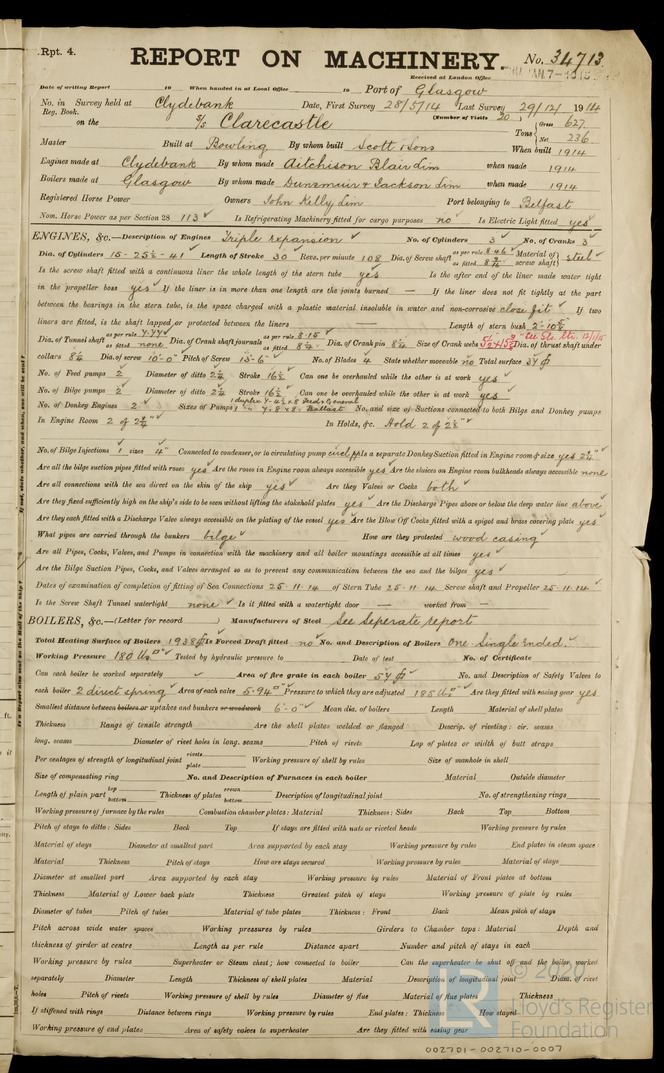 Rpt. 4.
REPORT ON MACHINERY.
No. 34713
Received at London Office
JAN. 7-1915
Date of writing Report 19 When handed in at Local Office 19 Port of Glasgow
No. in Survey held at Clydebank Date, First Survey 28/5/14 Last Survey 29/12/1914
Reg. Book. (Number of Visits 20)
on the S/S Clarecastle Tons { Gross 627 Net 236
Master Built at Bowling By whom built Scott & Sons When built 1914
Engines made at Clydebank By whom made Aitchison Blair Lim when made 1914
Boilers made at Glasgow By whom made Dunsmuir & Jackson Lim when made 1914
Registered Horse Power Owners John Kelly Lim Port belonging to Belfast
Nom. Horse Power as per Section 28 113 Is Refrigerating Machinery fitted for cargo purposes no Is Electric Light fitted yes
ENGINES, &c.—Description of Engines Triple expansion No. of Cylinders 3 No. of Cranks 3
Dia. of Cylinders 15-25½-41 Length of Stroke 30 Revs. per minute 108 Dia. of Screw shaft as per rule 8.46 as fitted Material of screw shaft } steel
Is the screw shaft fitted with a continuous liner the whole length of the stern tube yes Is the after end of the liner made water tight
in the propeller boss yes If the liner is in more than one length are the joints burned — If the liner does not fit tightly at the part
between the bearings in the stern tube, is the space charged with a plastic material insoluble in water and non-corrosive close fit If two
liners are fitted, is the shaft lapped or protected between the liners Length of stern bush
Dia. of Tunnel shaft as per rule 7.77 as fitted none Dia. of Crank shaft journals as per rule 8.15 as fitted Dia. of Crank pin Size of Crank webs Dia. of thrust shaft under
collars Dia. of screw 10'-0" Pitch of Screw 13'-6" No. of Blades 4 State whether moveable no Total surface 34
No. of Feed pumps 2 Diameter of ditto 2¼ Stroke 16½ Can one be overhauled while the other is at work yes
No. of Bilge pumps 2 Diameter of ditto 2¼ Stroke 16½ Can one be overhauled while the other is at work yes
No. of Donkey Engines 2 Sizes of Pumps No. and size of Suctions connected to both Bilge and Donkey pumps
In Engine Room 2 of In Holds, &c. Hold 2 of
No. of Bilge Injections 1 sizes 4" Connected to condenser, or to circulating pump Is a separate Donkey Suction fitted in Engine room & size yes
Are all the bilge suction pipes fitted with roses yes Are the roses in Engine room always accessible yes Are the sluices on Engine room bulkheads always accessible none
Are all connections with the sea direct on the skin of the ship yes Are they Valves or Cocks both
Are they fixed sufficiently high on the ship's side to be seen without lifting the stokehold plates yes Are the Discharge Pipes above or below the deep water line above
Are they each fitted with a Discharge Valve always accessible on the plating of the vessel yes Are the Blow Off Cocks fitted with a spigot and brass covering plate yes
What pipes are carried through the bunkers bilge How are they protected wood casing
Are all Pipes, Cocks, Valves, and Pumps in connection with the machinery and all boiler mountings accessible at all times yes
Are the Bilge Suction Pipes, Cocks, and Valves arranged so as to prevent any communication between the sea and the bilges yes
Dates of examination of completion of fitting of Sea Connections 25.11.14 of Stern Tube 25.11.14 Screw shaft and Propeller 25.11.14
Is the Screw Shaft Tunnel watertight none Is it fitted with a watertight door — worked from —
BOILERS, &c.—(Letter for record ) Manufacturers of Steel See Seperate report
Total Heating Surface of Boilers 1938 Is Forced Draft fitted no No. and Description of Boilers One Single Ended.
Working Pressure 180 lbs Tested by hydraulic pressure to Date of test No. of Certificate
Can each boiler be worked separately Area of fire grate in each boiler 54 No. and Description of Safety Valves to
each boiler 2 direct spring Area of each valve 5.94 Pressure to which they are adjusted 185 lbs Are they fitted with easing gear yes
Smallest distance between boilers or uptakes and bunkers or woodwork 6'-0" Mean dia. of boilers Length Material of shell plates
Thickness Range of tensile strength Are the shell plates welded or flanged Descrip. of riveting: cir. seams
long. seams Diameter of rivet holes in long. seams Pitch of rivets Lap of plates or width of butt straps
Per centages of strength of longitudinal joint rivets plate Working pressure of shell by rules Size of manhole in shell
Size of compensating ring No. and Description of Furnaces in each boiler Material Outside diameter
Length of plain part top bottom Thickness of plates crown bottom Description of longitudinal joint No. of strengthening rings
Working pressure of furnace by the rules Combustion chamber plates: Material Thickness: Sides Back Top Bottom
Pitch of stays to ditto: Sides Back Top If stays are fitted with nuts or riveted heads Working pressure by rules
Material of stays Diameter at smallest part Area supported by each stay Working pressure by rules End plates in steam space:
Material Thickness Pitch of stays How are stays secured Working pressure by rules Material of stays
Diameter at smallest part Area supported by each stay Working pressure by rules Material of Front plates at bottom
Thickness Material of Lower back plate Thickness Greatest pitch of stays Working pressure of plate by rules
Diameter of tubes Pitch of tubes Material of tube plates Thickness: Front Back Mean pitch of stays
Pitch across wide water spaces Working pressures by rules Girders to Chamber tops: Material Depth and
thickness of girder at centre Length as per rule Distance apart Number and pitch of stays in each
Working pressure by rules Superheater or Steam chest; how connected to boiler Can the superheater be shut off and the boiler worked
separately Diameter Length Thickness of shell plates Material Description of longitudinal joint Diam. of rivet
holes Pitch of rivets Working pressure of shell by rules Diameter of flue Material of flue plates Thickness
If stiffened with rings Distance between rings Working pressure by rules End plates: Thickness How stayed
Working pressure of end plates Area of safety valves to superheater Are they fitted with easing gear
002701-002710-0007
© 2020
Lloyd's Register
Foundation